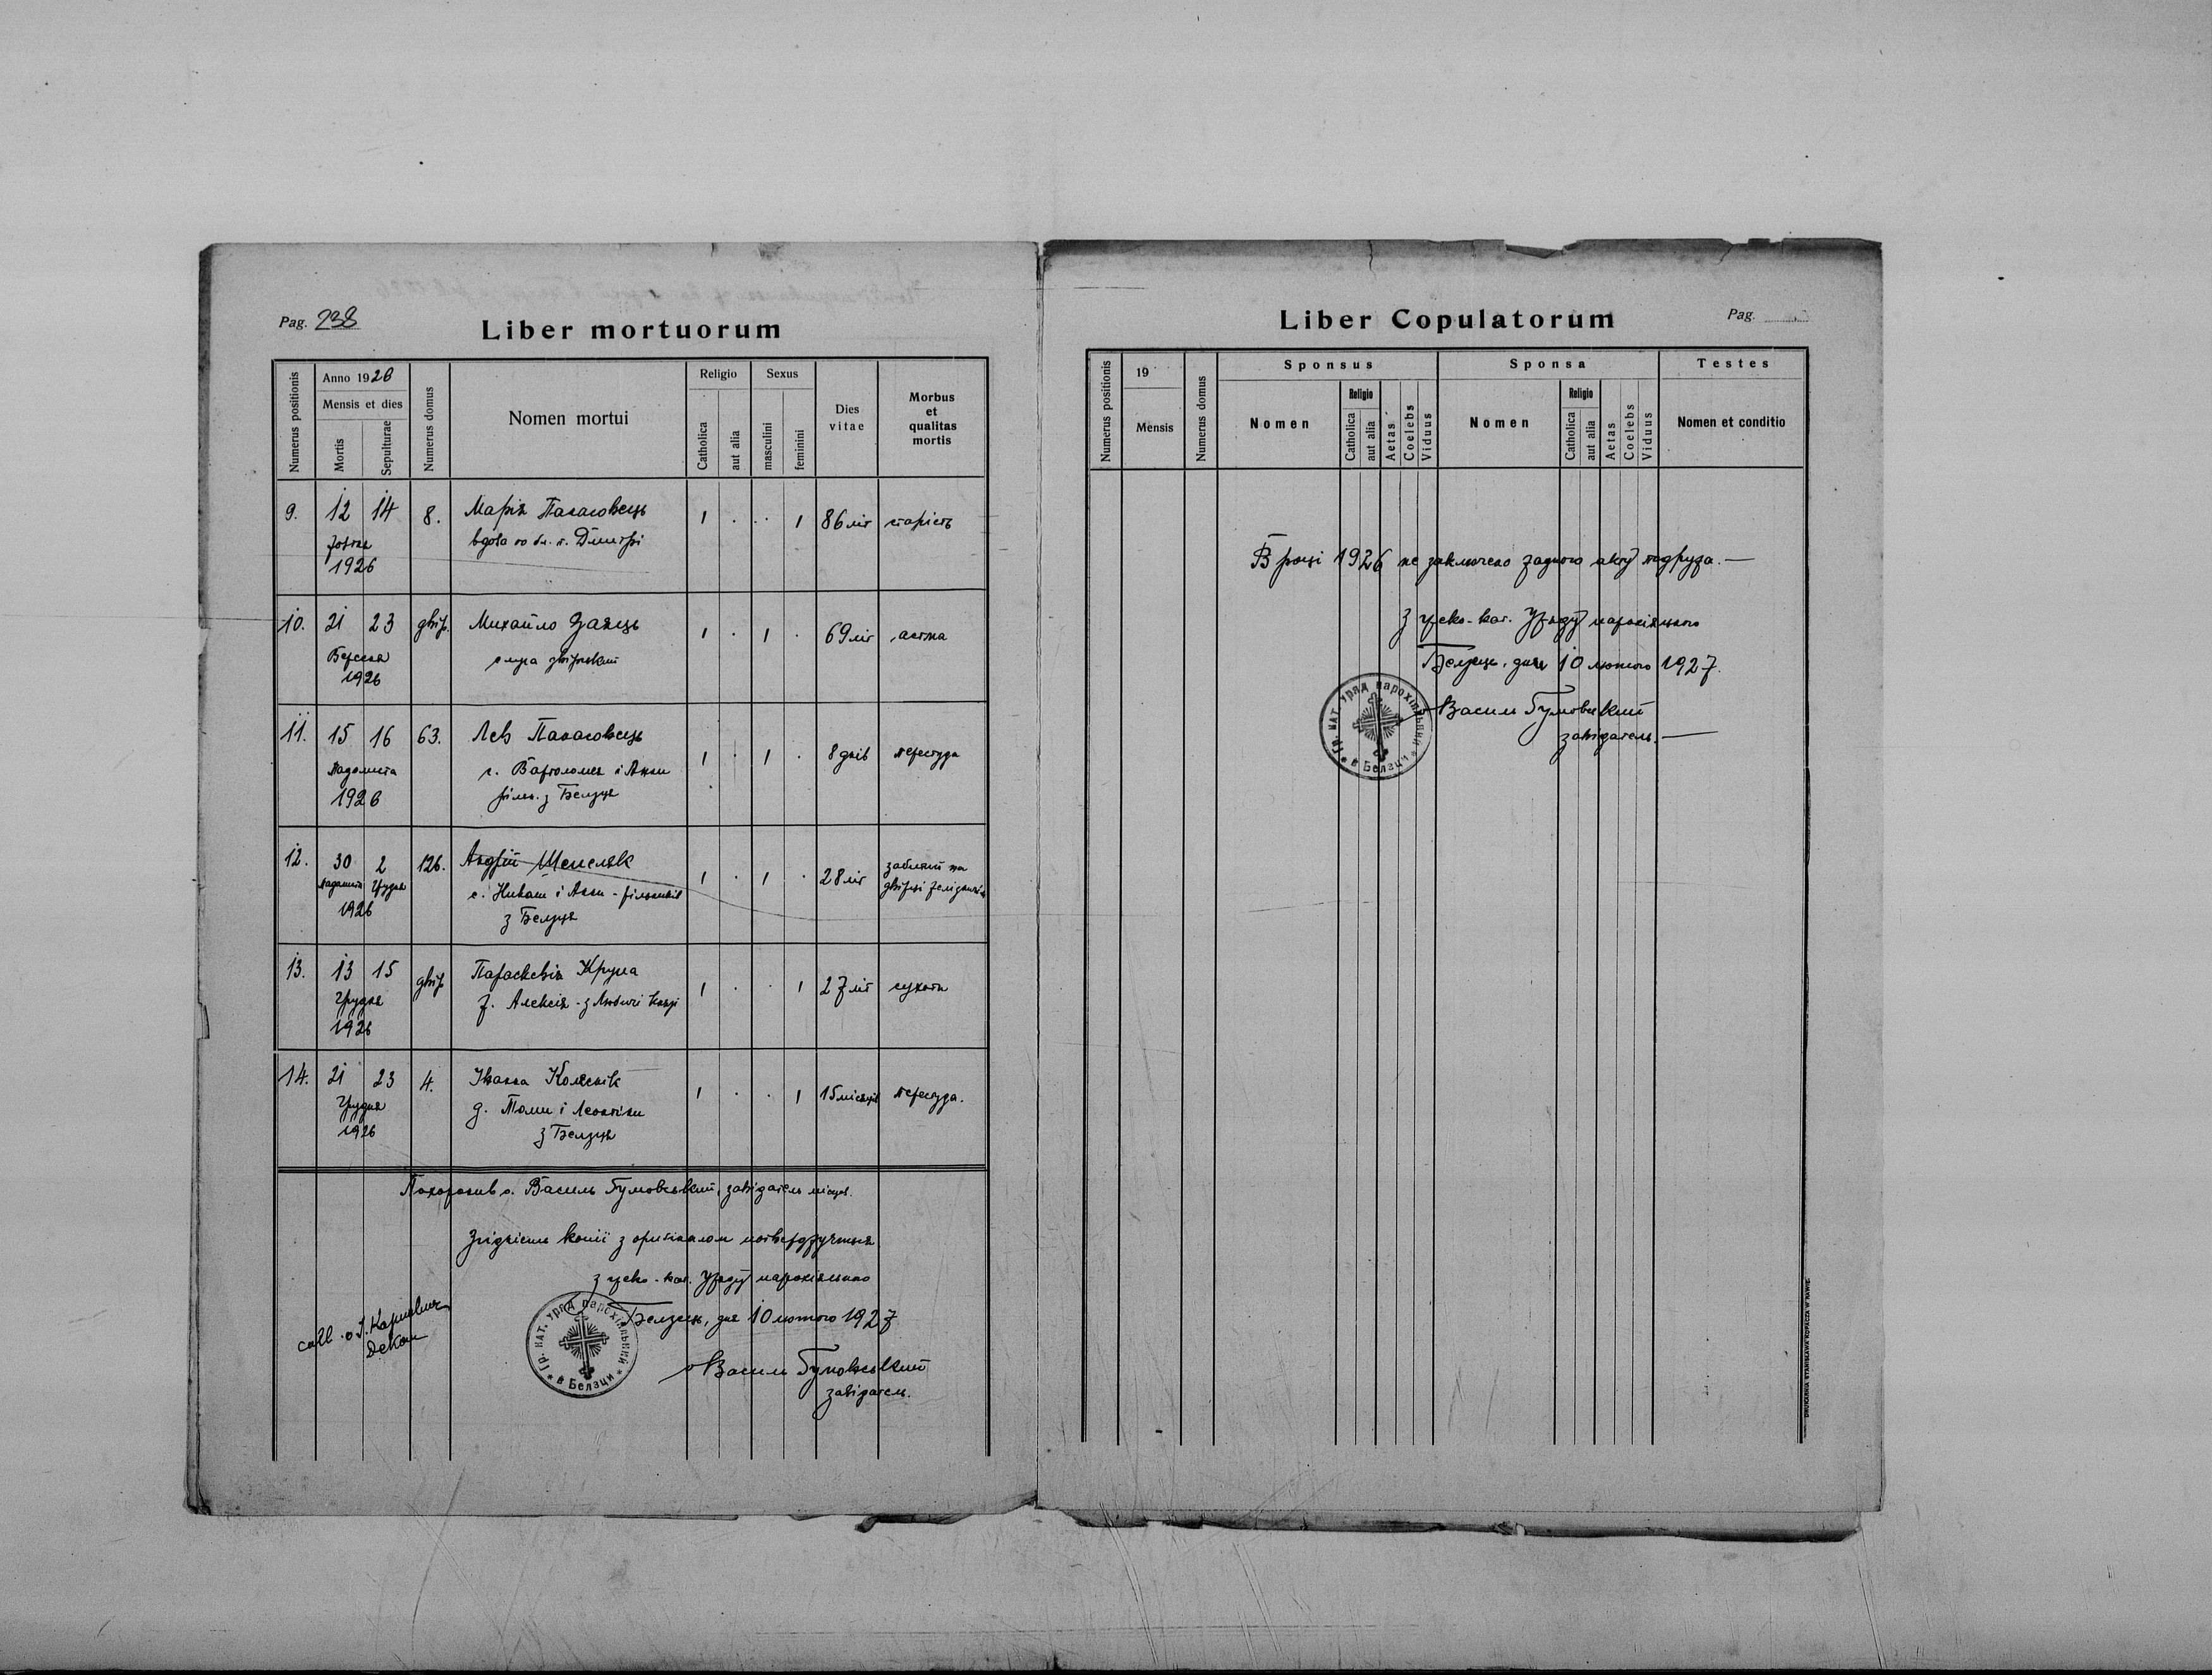 Pag. 238
Liber mortuorum
Numerus positionis
Anno 1926
Mensis et dies
Mortis
Sepulturae
Numerus domus
Nomen mortui
Religio
Catholica
aut alia
Sexus
masculini
feminini
Dies vitae
Morbus et qualitas mortis
9. 12 14 8. Марія 1 . . 1 86 літ старість
вдова по бл. п. Дмитрі
1926
10. 21 23 двір. Михайло Заяць 1 . 1 . 69 літ астма
слуга двірський
1926
11. 15 16 63. Лев 1 . 1 . 8 днів перестуда
падолиста
с. Вартоломея і Анни
1926
рільн. з Белзця
12. 30 2 126. Андрій Шепеляк 1 . 1 . 28 літ забитий на
падолиста Грудня
двірци зелізничім
с. Николи і Анни - рільників
1926
з Белзця
13. 13 15 двір Параскевія Крупа 1 . . 1 27 літ сухоти
Грудня
ж. Алексія - з Любичі Князі
1926
14. 21 23 4. Іванна Колєсník 1 . . 1 15 місяців перестуда.
Грудня
д. Томи і Леонтини
1926
з Белзця
Похоронив о. Василь Гумовський, завідатель місцев.
Згідність копії з оригіналом потверджується
З греко-кат. Уряду парохіяльного
Белзець, дня 10 лютого 1927
о Василь Гумовський
завідатель.
Гр. кат. уряд парохіяльний * в Белзци *
о І. Карпович
декан
Liber Copulatorum
Pag.
Numerus positionis
19
Mensis
Numerus domus
Sponsus
Nomen
Religio
Catholica
aut alia
Aetas
Coelebs
Viduus
Sponsa
Nomen
Religio
Catholica
aut alia
Aetas
Coelebs
Viduus
Testes
Nomen et conditio
В році 1926 не заключено задного акту подружа. —
З греко-кат. Уряду парохіяльного
Белзець, дня 10 лютого 1927.
о Василь Гумовський
завідатель. —
Гр. кат. уряд парохіяльний * в Белзци *
DRUKARNIA STANISŁAWA KOPACZA W RAWIE